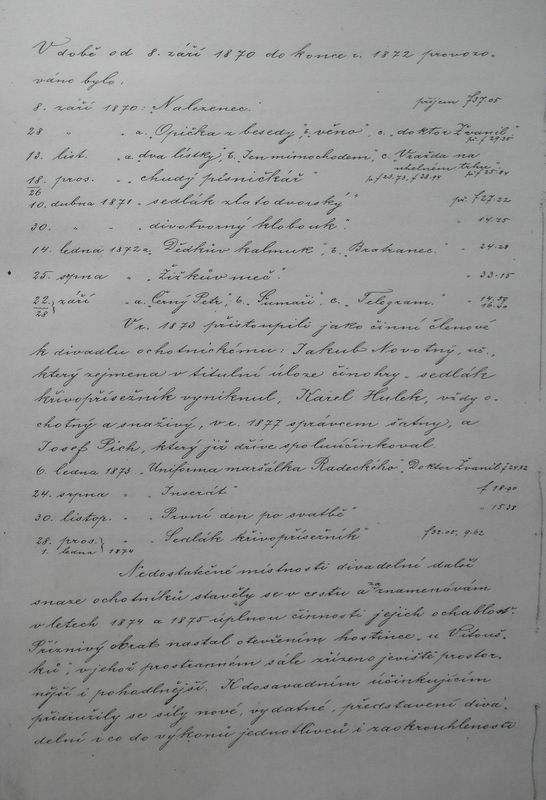 V době od 8. září 1870 do konce r. 1872 provozo-
váno bylo:
8. září 1870: „Nalezenec." příjem f 37.05
28 " " a. „Opička z besedy", b. „věno", c. „doktor Žvanil" př. f 29.35
13. list. a. „dva lístky", b. „Jen mimochodem", c. „Vražda na
uhelném trhu" př. f 25.84
18./26 pros. - „chudý písničkář" př. f 23.73, f 28.94
10. dubna 1871 - „sedlák zlatodvorský" př. f 27.22
30. " " - „divotvorný klobouk". " 14.75
14. ledna 1872 a. „Dědkův kalmuk", b. „Bratranec." - 24.28
25. srpna - „Žižkův meč." - 33.15
22./28 } září - a. „Černý Petr", b. „Šumaři", c. „Telegram." - 14.59 16.40
V r. 1873 přistoupili jako činní členové
k divadlu ochotnickému: Jakub Novotný, uč.,
který zejmena v titulní úloze činohry - sedlák
křivopřísežník vyniknul, Karel Hulek, vždy o-
chotný a snaživý, v r. 1877 správcem šatny, a
Josef Pich, který již dříve spoluúčinkoval.
6. ledna 1873 - „Uniforma maršálka Radeckého", Doktor Žvanil f 29.32
24. srpna " - „Inserát" f 18.90
30. listop. " - „První den po svatbě" " 15.38
28. pros. } 1. ledna 1874 - „Sedlák křivopřísežník" f 32.05, 9.62
Nedostatečné místnosti divadelní další
snaze ochotníků stavěly se v cestu a zaznamenávám
v letech 1874 a 1875 úplnou činnosti jejich ochablost.
Příznivý obrat nastal otevřením hostince „u Vitouš-
ků", v jehož prostranném sále zřízeno jeviště prostor-
nější i pohodlnější. K dosavadním účinkujícím
přidružily se síly nové, vydatné, představení diva-
delní i co do výkonů jednotlivců i zaokrouhlenosti